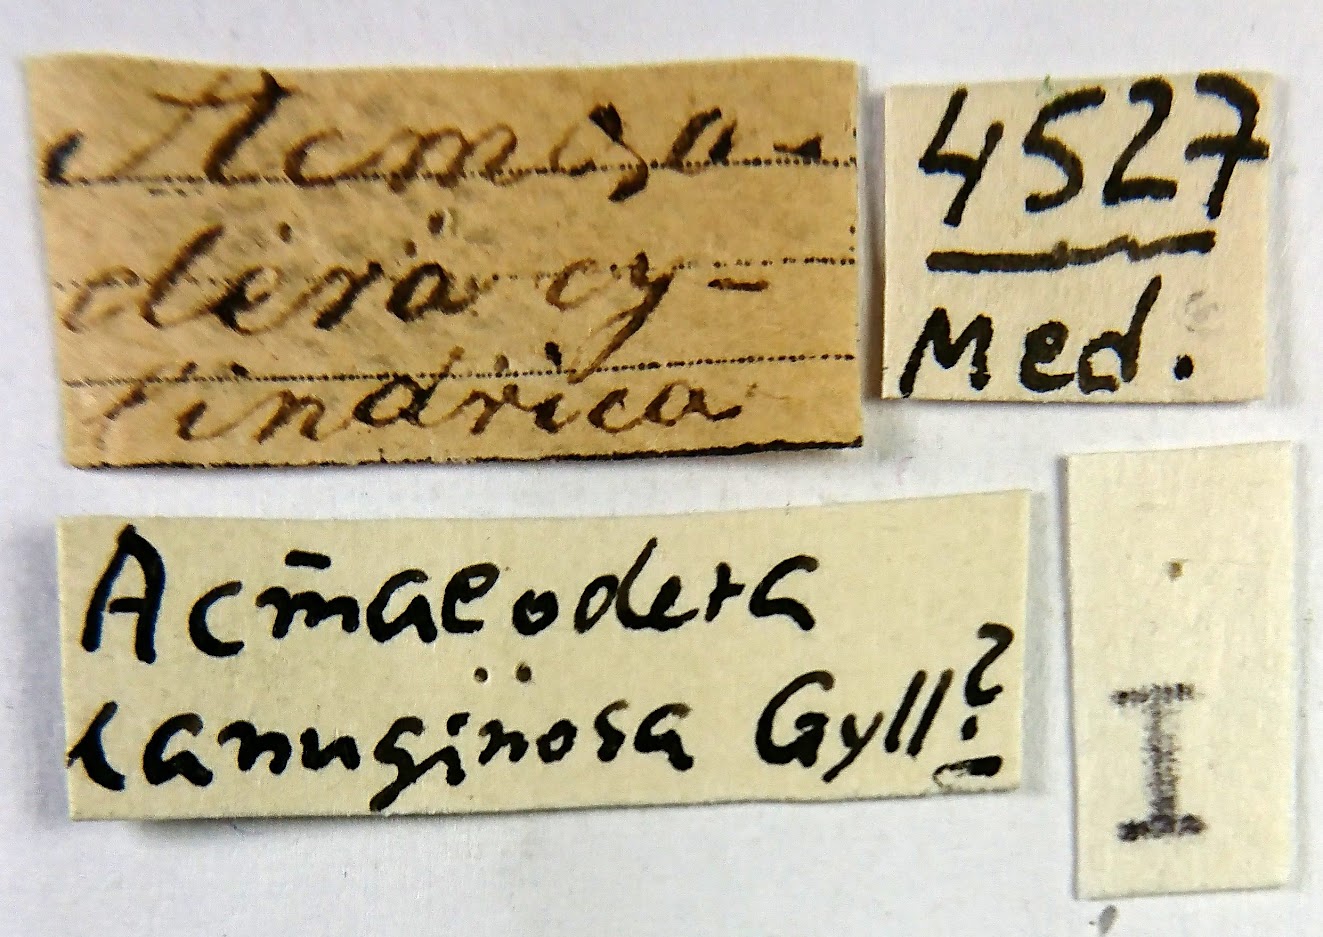 Acmæo-
dera cy-
lindrica
4527
Med.
Acmaeodera
lanuginosa Gyll?
I